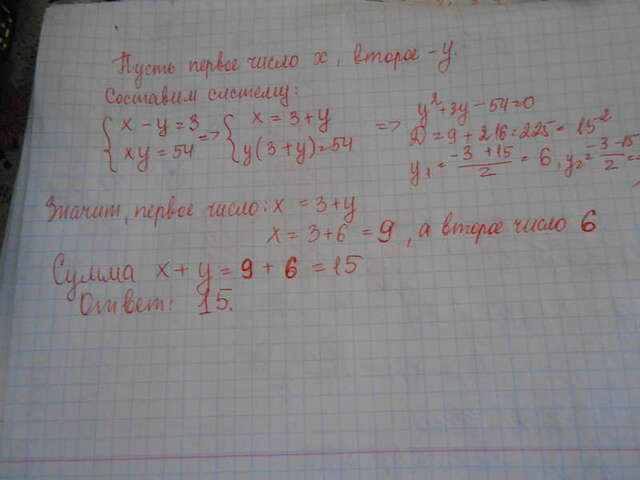 Пусть первое число x, второе - y.
Составим систему:
{ x - y = 3 => { x = 3 + y => y² + 3y - 54 = 0
xy = 54 y(3 + y) = 54 D = 9 + 216 = 225 = 15²
y₁ = (-3 + 15)/2 = 6, y₂ = (-3 - 15)/2 =
Значит, первое число: x = 3 + y
x = 3 + 6 = 9, а второе число 6
Сумма x + y = 9 + 6 = 15
Ответ: 15.